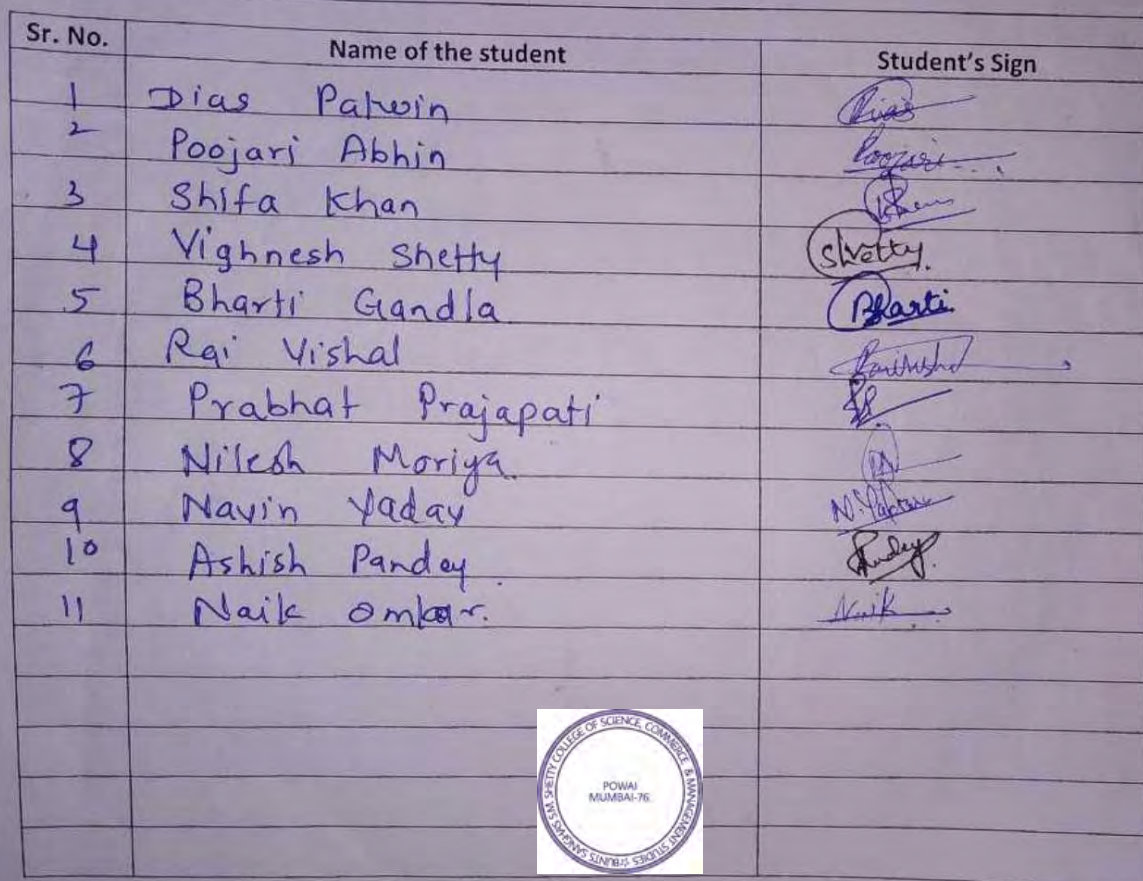 Sr. No. Name of the student Student's Sign
1 Dias Palwin Dias
2 Poojari Abhin Poojari
3 Shifa Khan Khan
4 Vighnesh Shetty Shetty.
5 Bharti Gandla Bharti
6 Rai Vishal
7 Prabhat Prajapati
8 Nilesh Moriya
9 Navin Yadav N. Yadav
10 Ashish Pandey Pandey.
11 Naik Omkar. Naik
BUNTS SANGHA'S S.M. SHETTY COLLEGE OF SCIENCE, COMMERCE & MANAGEMENT STUDIES
POWAI
MUMBAI-76.